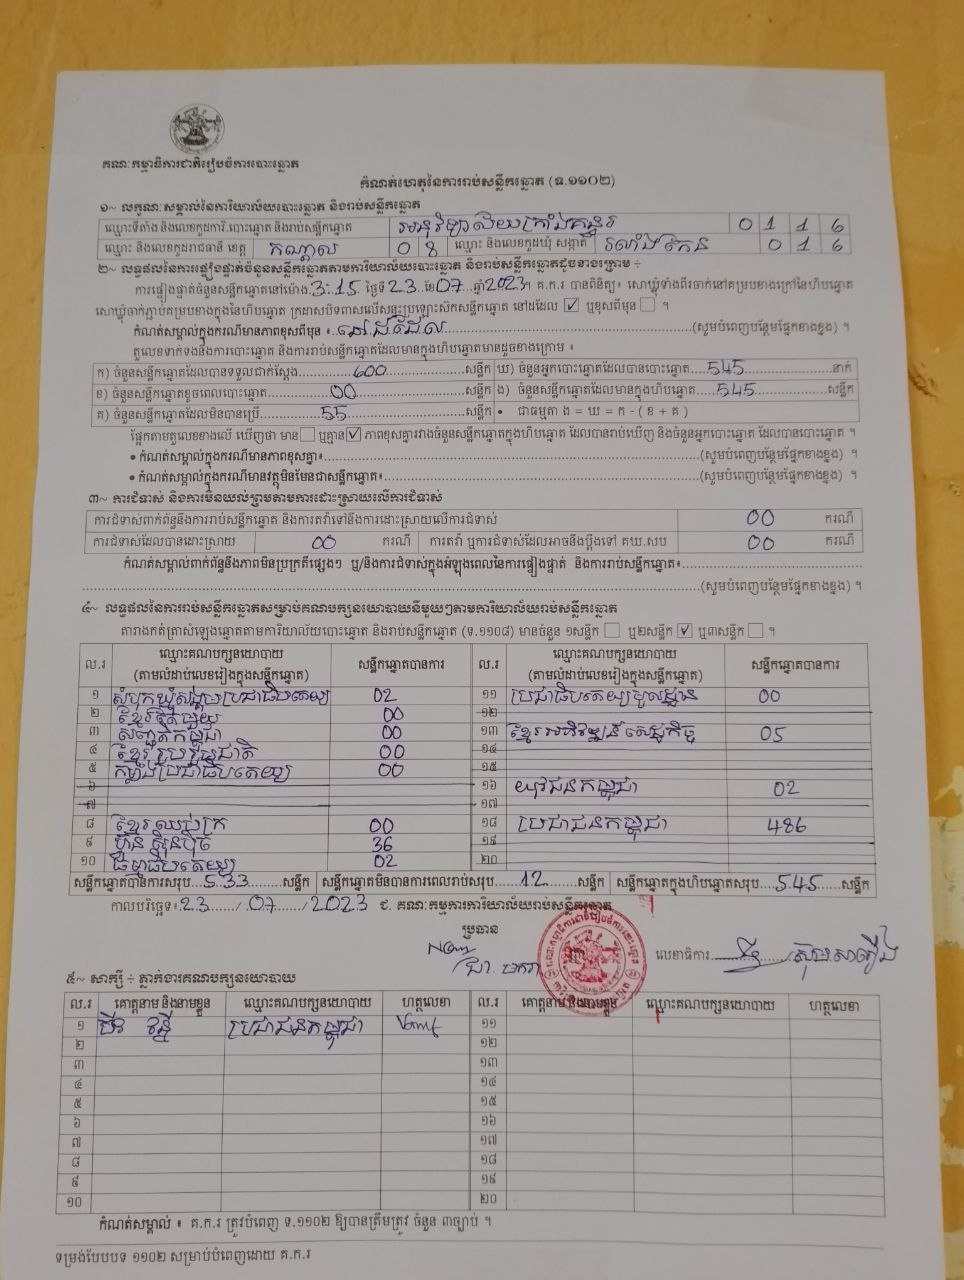 គណៈកម្មាធិការជាតិរៀបចំការបោះឆ្នោត
កំណត់ហេតុនៃការរាប់សន្លឹកឆ្នោត (ទ.១១០២)
១~ លក្ខណៈសម្គាល់នៃការិយាល័យបោះឆ្នោត និងរាប់សន្លឹកឆ្នោត
ឈ្មោះទីតាំង និងលេខកូដការិ.បោះឆ្នោត និងរាប់សន្លឹកឆ្នោត 0 1 1 6
ឈ្មោះ និងលេខកូដរាជធានី ខេត្ត កណ្តាល 0 8 ឈ្មោះ និងលេខកូដឃុំ សង្កាត់ រលាំងកែន 0 1 6
២~ លទ្ធផលនៃការផ្ទៀងផ្ទាត់ចំនួនសន្លឹកឆ្នោតតាមការិយាល័យបោះឆ្នោត និងរាប់សន្លឹកឆ្នោតដូចខាងក្រោម ÷
ការផ្ទៀងផ្ទាត់ចំនួនសន្លឹកឆ្នោតនៅម៉ោង 3:15 ថ្ងៃទី 23 ខែ 07 ឆ្នាំ 2023។ គ.ក.រ បានពិនិត្យ៖ សោឃ្មុំទាំងពីរចាក់នៅគម្របខាងក្រៅនៃហិបឆ្នោត
សោឃ្មុំចាក់ភ្ជាប់គម្របខាងក្នុងនៃហិបឆ្នោត ក្រដាសបិទពាសលើសន្ទះប្រឡោះស៊កសន្លឹកឆ្នោត នៅដដែល ☑ ឬខុសពីមុន ☐ ។
កំណត់សម្គាល់ក្នុងករណីមានភាពខុសពីមុន ៖ នៅដដែល (សូមបំពេញបន្ថែមផ្នែកខាងខ្នង) ។
តួលេខទាក់ទងនឹងការបោះឆ្នោត និងការរាប់សន្លឹកឆ្នោតដែលមានក្នុងហិបឆ្នោតមានដូចខាងក្រោម ៖
ក) ចំនួនសន្លឹកឆ្នោតដែលបានទទួលជាក់ស្តែង 600 សន្លឹក ឃ) ចំនួនអ្នកបោះឆ្នោតដែលបានបោះឆ្នោត 545 នាក់
ខ) ចំនួនសន្លឹកឆ្នោតខូចពេលបោះឆ្នោត 00 សន្លឹក ង) ចំនួនសន្លឹកឆ្នោតដែលមានក្នុងហិបឆ្នោត 545 សន្លឹក
គ) ចំនួនសន្លឹកឆ្នោតដែលមិនបានប្រើ 55 សន្លឹក • ជាធម្មតា ង = ឃ = ក - ( ខ + គ )
ផ្អែកតាមតួលេខខាងលើ ឃើញថា មាន ☐ ឬគ្មាន ☑ ភាពខុសគ្នារវាងចំនួនសន្លឹកឆ្នោតក្នុងហិបឆ្នោត ដែលបានរាប់ឃើញ និងចំនួនអ្នកបោះឆ្នោត ដែលបានបោះឆ្នោត ។
• កំណត់សម្គាល់ក្នុងករណីមានភាពខុសគ្នា៖ (សូមបំពេញបន្ថែមផ្នែកខាងខ្នង) ។
• កំណត់សម្គាល់ក្នុងករណីមានវត្ថុមិនមែនជាសន្លឹកឆ្នោត៖ (សូមបំពេញបន្ថែមផ្នែកខាងខ្នង) ។
៣~ ការជំទាស់ និងការមិនយល់ព្រមតាមការដោះស្រាយលើការជំទាស់
ការជំទាស់ពាក់ព័ន្ធនឹងការរាប់សន្លឹកឆ្នោត និងការតវ៉ាទៅនឹងការដោះស្រាយលើការជំទាស់ 00 ករណី
ការជំទាស់ដែលបានដោះស្រាយ 00 ករណី ការតវ៉ា ឬការជំទាស់ដែលអាចនឹងប្តឹងទៅ គឃ.សប 00 ករណី
កំណត់សម្គាល់ពាក់ព័ន្ធនឹងភាពមិនប្រក្រតីផ្សេងៗ ឬ/និងការជំទាស់ក្នុងអំឡុងពេលនៃការផ្ទៀងផ្ទាត់ និងការរាប់សន្លឹកឆ្នោត៖
(សូមបំពេញបន្ថែមផ្នែកខាងខ្នង) ។
៤~ លទ្ធផលនៃការរាប់សន្លឹកឆ្នោតសម្រាប់គណបក្សនយោបាយនីមួយៗតាមការិយាល័យរាប់សន្លឹកឆ្នោត
តារាងកត់ត្រាសំឡេងឆ្នោតតាមការិយាល័យបោះឆ្នោត និងរាប់សន្លឹកឆ្នោត (ទ.១១០៨) មានចំនួន ១សន្លឹក ☐ ឬ២សន្លឹក ☑ ឬ៣សន្លឹក ☐ ។
ល.រ ឈ្មោះគណបក្សនយោបាយ (តាមលំដាប់លេខរៀងក្នុងសន្លឹកឆ្នោត) សន្លឹកឆ្នោតបានការ ល.រ ឈ្មោះគណបក្សនយោបាយ (តាមលំដាប់លេខរៀងក្នុងសន្លឹកឆ្នោត) សន្លឹកឆ្នោតបានការ
១ សំបុកឃ្មុំសង្គមប្រជាធិបតេយ្យ 02 ១១ ប្រជាធិបតេយ្យមូលដ្ឋាន 00
២ ខ្មែរតែមួយ 00 ១២
៣ សញ្ជាតិកម្ពុជា 00 ១៣ ខ្មែរអភិវឌ្ឍន៍សេដ្ឋកិច្ច 05
៤ ខ្មែររួបរួមជាតិ 00 ១៤
៥ កម្លាំងប្រជាធិបតេយ្យ 00 ១៥
៦ ១៦ យុវជនកម្ពុជា 02
៧ ១៧
៨ ខ្មែរឈប់ក្រ 00 ១៨ ប្រជាជនកម្ពុជា 486
៩ ហ៊្វុនស៊ិនប៉ិច 36 ១៩
១០ ធម្មាធិបតេយ្យ 02 ២០
សន្លឹកឆ្នោតបានការសរុប 533 សន្លឹក សន្លឹកឆ្នោតមិនបានការពេលរាប់សរុប 12 សន្លឹក សន្លឹកឆ្នោតក្នុងហិបឆ្នោតសរុប 545 សន្លឹក
កាលបរិច្ឆេទ៖ 23 / 07 / 2023 ជ. គណៈកម្មការការិយាល័យរាប់សន្លឹកឆ្នោត
ប្រធាន
លេខាធិការ
៥~ សាក្សី ÷ ភ្នាក់ងារគណបក្សនយោបាយ
ល.រ គោត្តនាម និងនាមខ្លួន ឈ្មោះគណបក្សនយោបាយ ហត្ថលេខា ល.រ គោត្តនាម និងនាមខ្លួន ឈ្មោះគណបក្សនយោបាយ ហត្ថលេខា
១ ប្រជាជនកម្ពុជា ១១
២ ១២
៣ ១៣
៤ ១៤
៥ ១៥
៦ ១៦
៧ ១៧
៨ ១៨
៩ ១៩
១០ ២០
កំណត់សម្គាល់ ៖ គ.ក.រ ត្រូវបំពេញ ទ.១១០២ ឱ្យបានត្រឹមត្រូវ ចំនួន ៣ច្បាប់ ។
ទម្រង់បែបបទ ១១០២ សម្រាប់បំពេញដោយ គ.ក.រ